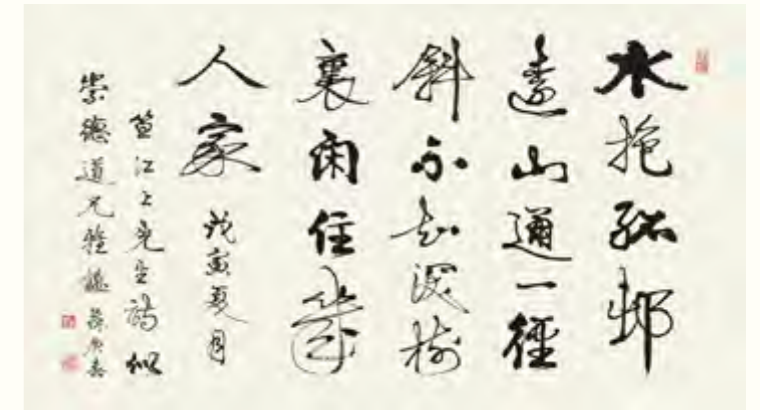 水抱孤邨
遠山通一徑
斜不知深樹
裏閑住幾
人家 戊寅夏月
笪江上先生詩似
崇德道兄雅 蘇庚春